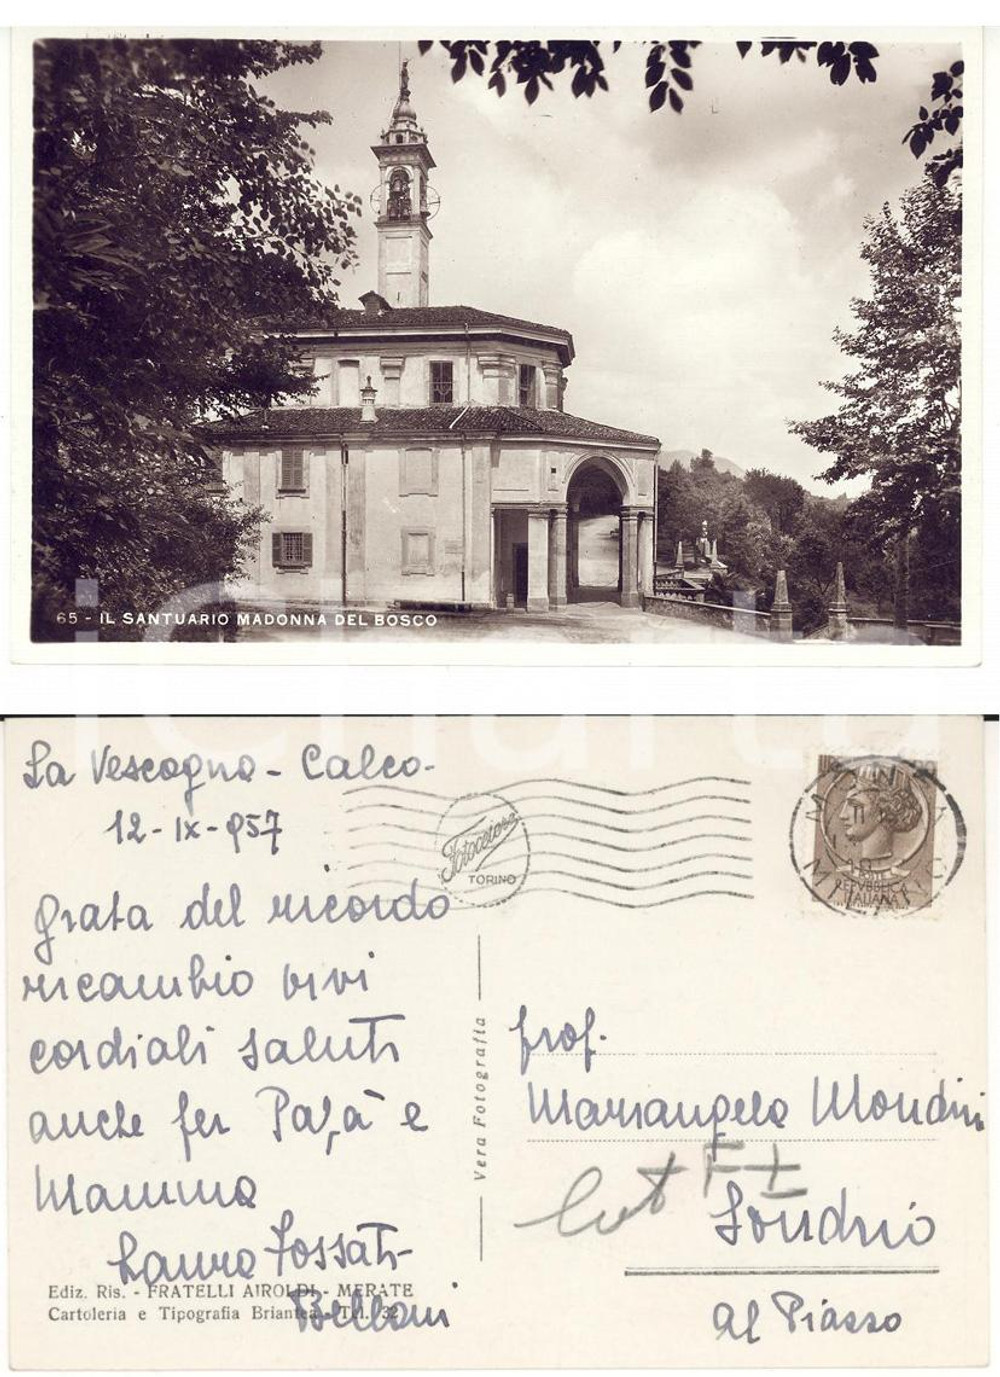 65 - IL SANTUARIO MADONNA DEL BOSCO
La Vescogna - Calco -
12 - IX - 957
Fotocelere
TORINO
REPUBBLICA
ITALIANA
grata del ricordo
ricambio vivi
cordiali saluti
anche per Papà e
Mamma
Laura Fossati
Bellani
Ediz. Ris. - FRATELLI AIROLDI - MERATE
Cartoleria e Tipografia Briantea - Tel. 32
Vera Fotografia
Prof.
Mariangela Mondini
Sondrio
Al Piazzo